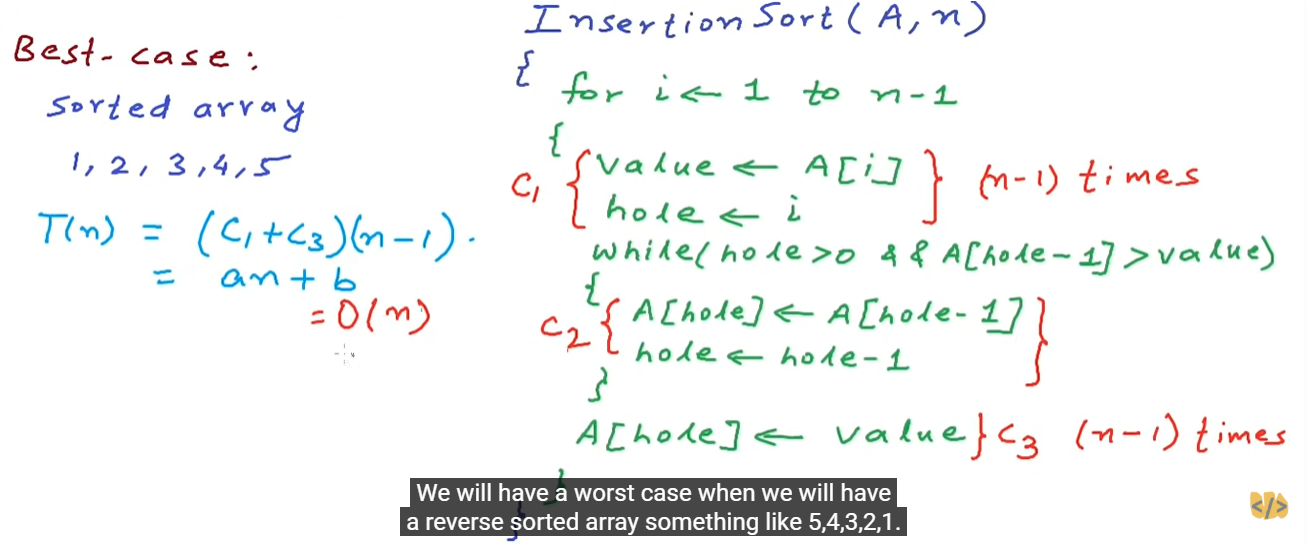 Best-case:
sorted array
1, 2, 3, 4, 5
T(n) = (C1+C3)(n-1).
= an + b
= O(n)
InsertionSort(A, n)
{
for i ← 1 to n-1
{
C1 { value ← A[i] } (n-1) times
hole ← i
while(hole>0 && A[hole-1]>value)
{
C2 { A[hole] ← A[hole-1] }
hole ← hole-1
}
A[hole] ← value } C3 (n-1) times
}
}
We will have a worst case when we will have
a reverse sorted array something like 5,4,3,2,1.
</>